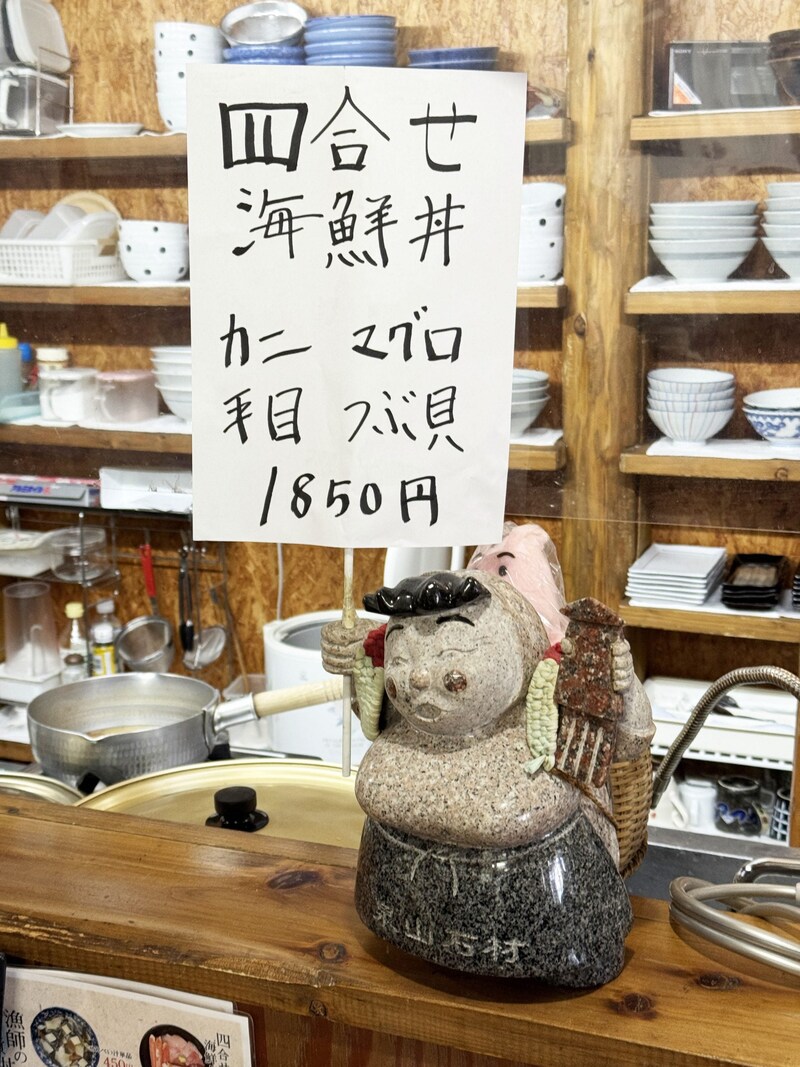 四合せ
海鮮丼
カニ マグロ
平目 つぶ貝
1850円
山石材
漁師の
450円
四合せ
海鮮